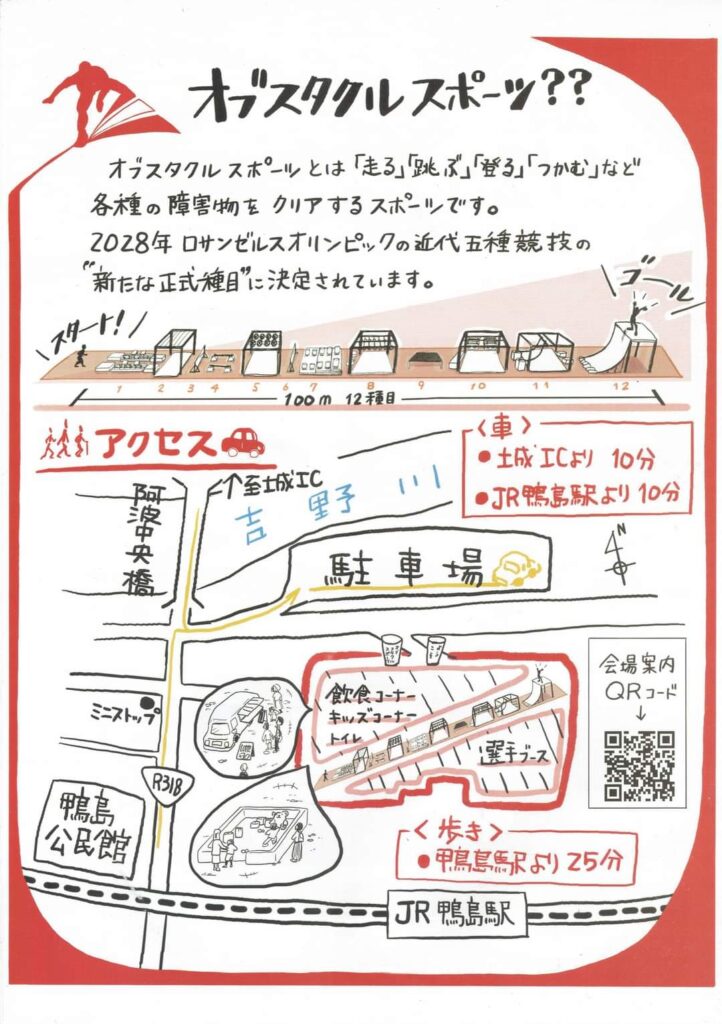 オブスタクルスポーツ??
オブスタクルスポーツとは「走る」「跳ぶ」「登る」「つかむ」など
各種の障害物をクリアするスポーツです。
2028年ロサンゼルスオリンピックの近代五種競技の
"新たな正式種目"に決定されています。
スタート!
ゴール
1 2 3 4 5 6 7 8 9 10 11 12
100m 12種目
アクセス
<車>
●土成ICより 10分
●JR鴨島駅より10分
↑至土成IC
吉野川
阿波中央橋
駐車場
N
飲食コーナー
キッズコーナー
トイレ
選手ブース
会場案内
QRコード
↓
ミニストップ
R318
鴨島
公民館
<歩き>
●鴨島駅より25分
JR鴨島駅